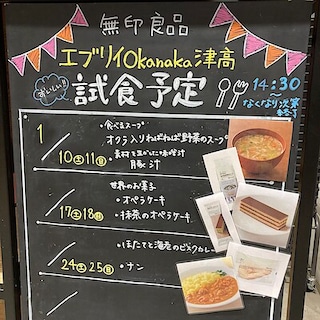 無印良品
エブリイOkanaka津高
おいしい!!
試食予定
14:30
〜
なくなり次第
終了
1/
10(土)11(日)
・食べるスープ
オクラ入りねばねば野菜のスープ
・素材を生かした味噌汁
豚汁
17(土)18(日)
世界のお菓子
・オペラケーキ
・抹茶のオペラケーキ
24(土)25(日)
・ほたてと海老のビスクカレー
・ナン